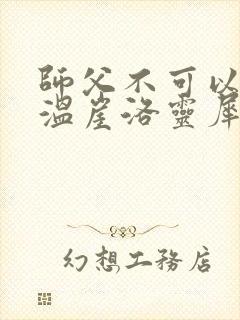 師父不可以
溫崖洛靈犀
幻想工務店